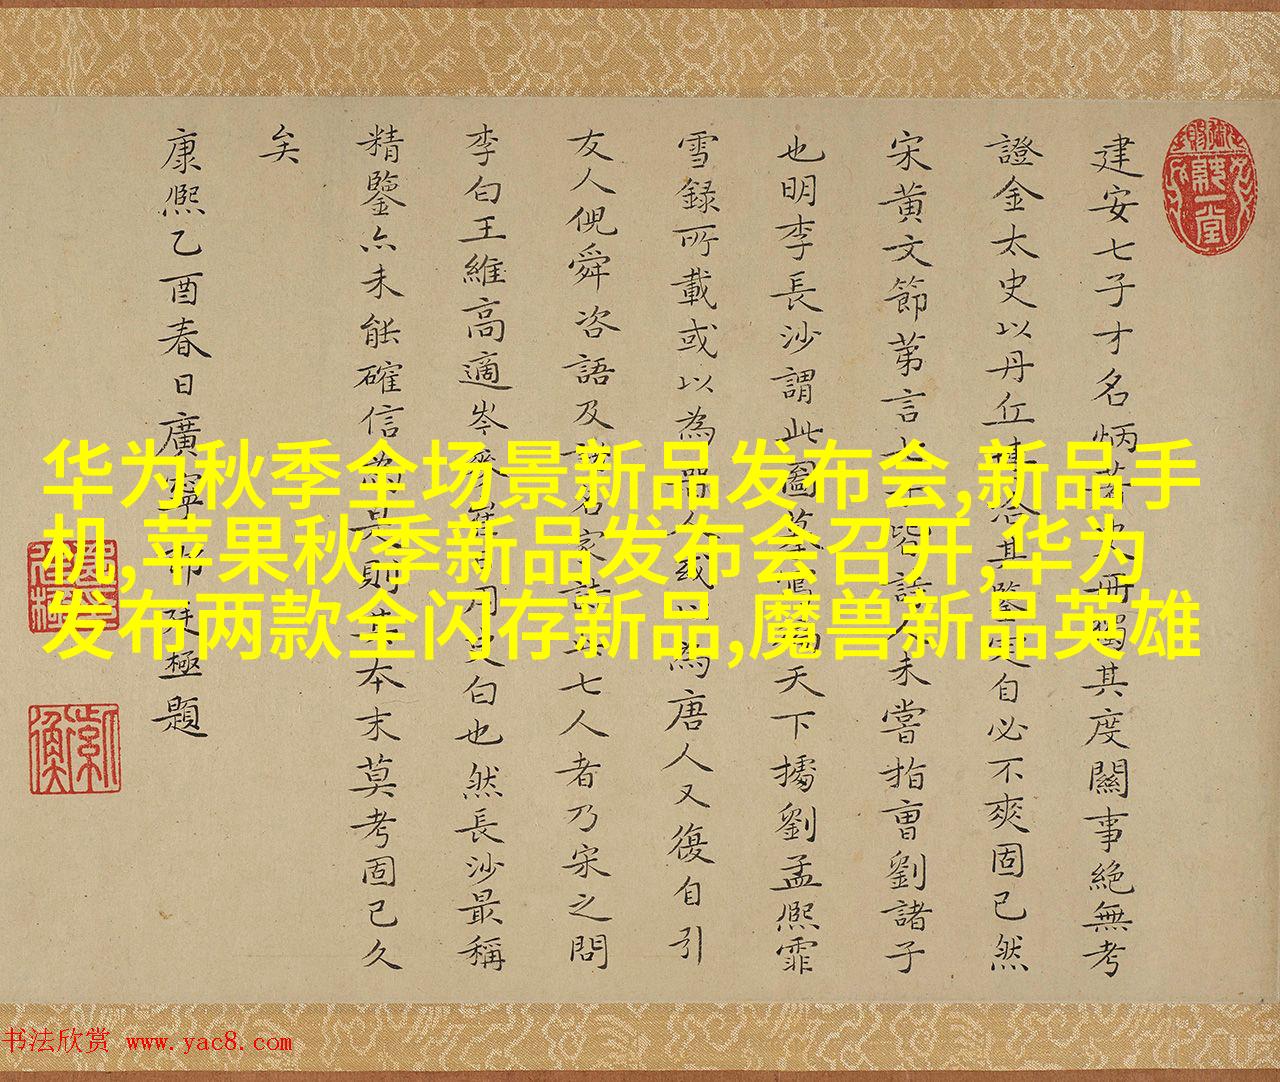 建安七子才名炳其度關事絕無考
證金太史以丹丘自必不爽固已然
宋黃文節第言皆詩人未嘗指曹劉諸子
也明李長沙謂此圖天下擄劉孟熙霏
雪録所載或以為為唐人又復自引
友人倪舜咨語及名家詩七人者乃宋之問
李白王維高適岑參白也然長沙最稱
精鑒亦未能確信則本末莫考固已久
矣
康熙乙酉春日廣寧郎廷極題
华为秋季全场景新品发布会,新品手
机,苹果秋季新品发布会召开,华为
发布两款全闪存新品,魔兽新品英雄
书法欣赏 www.yac8.com